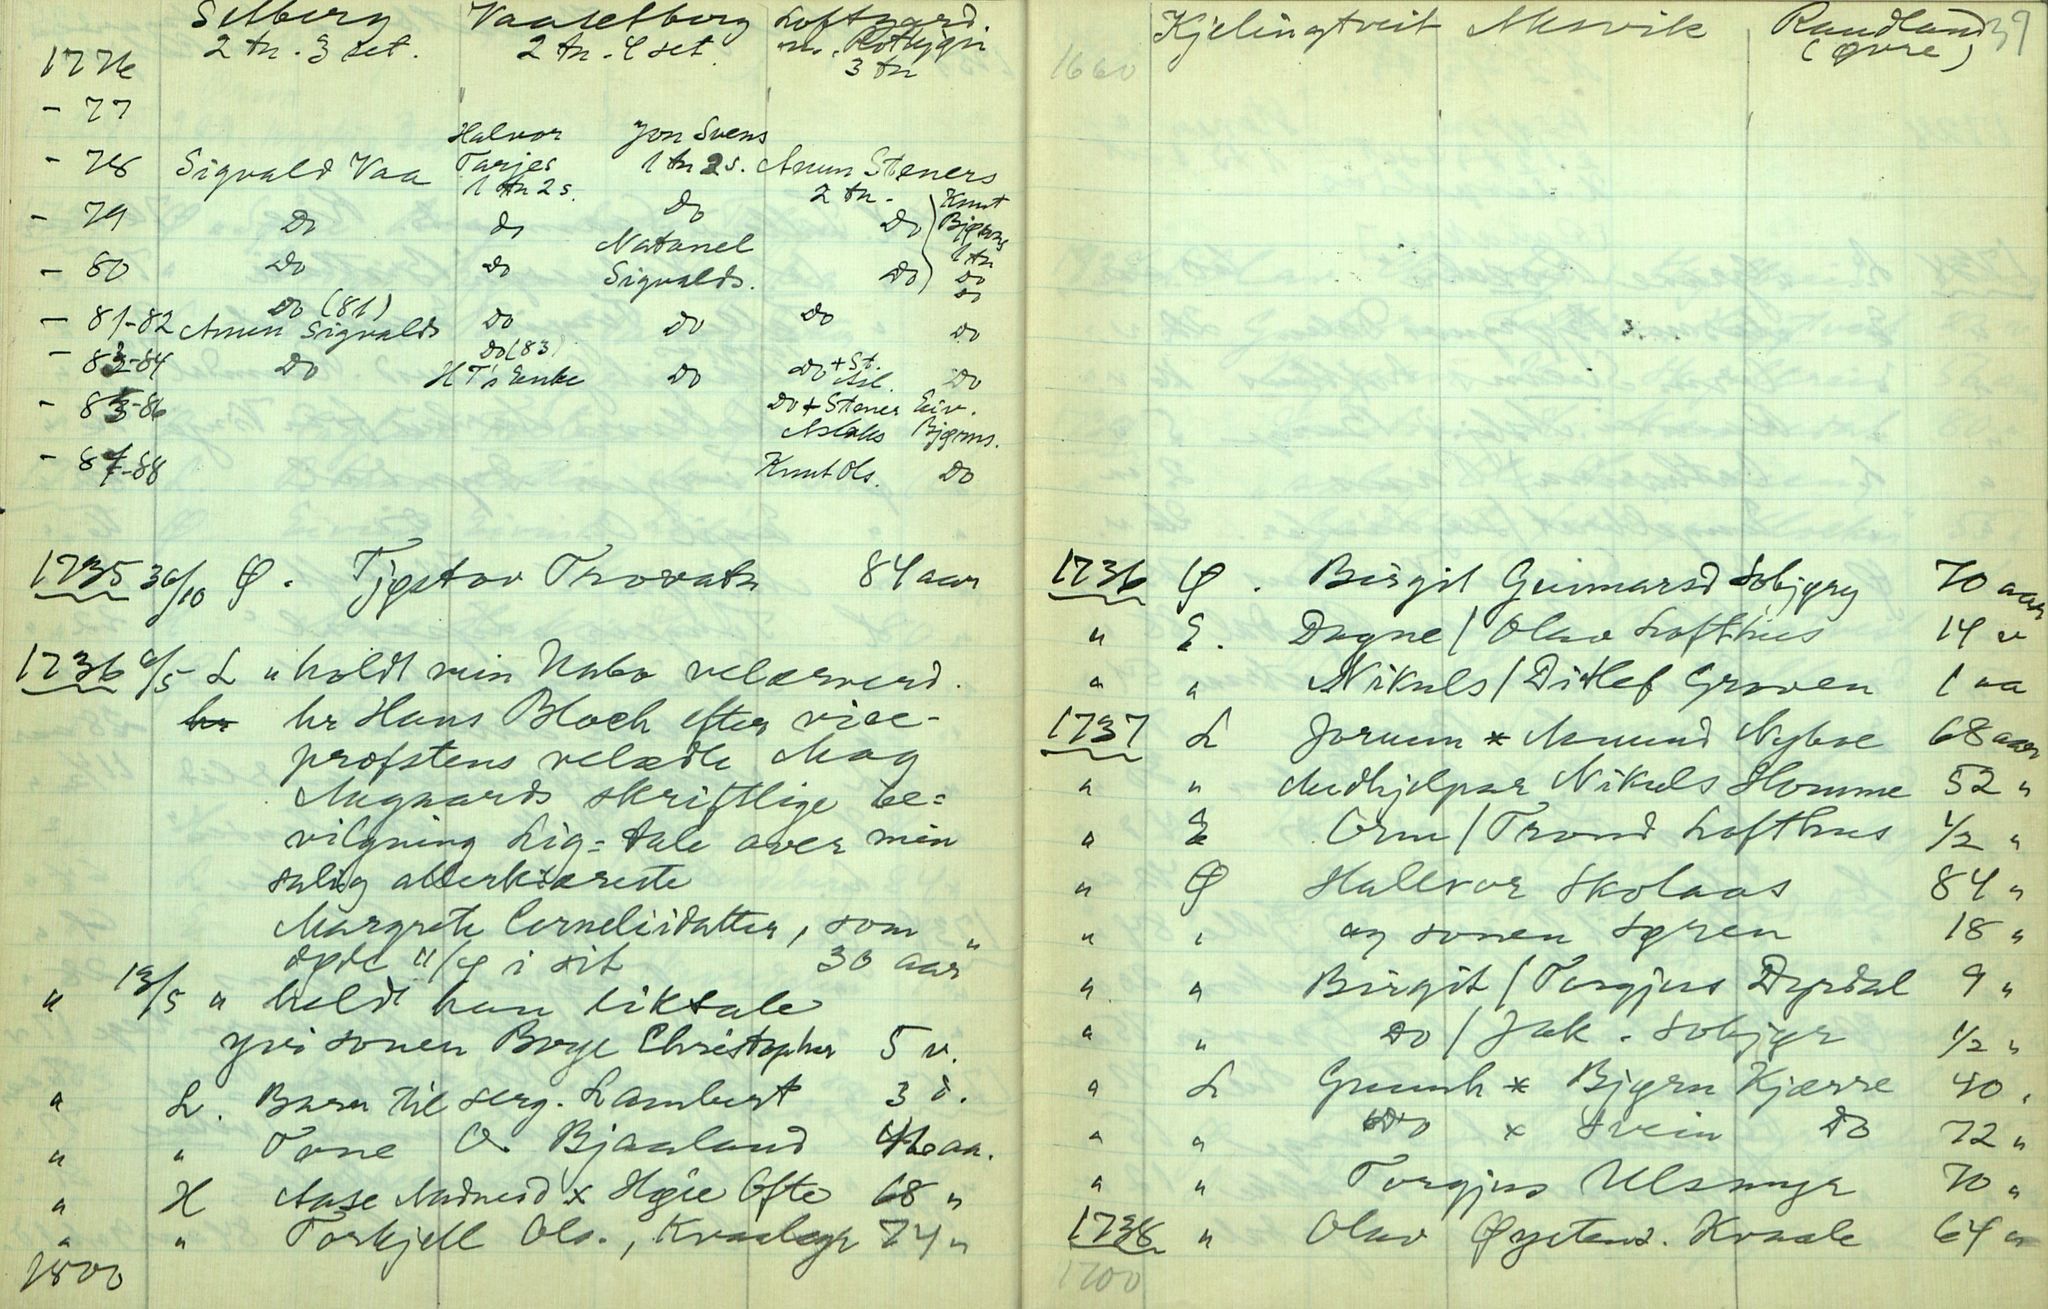 Selberg Vaaselborg Loftsgard
1776 2 tn. 3 set. 2 tn. 4 set. m. 3 tn
- 77
Halvor Jon Svens
- 78 Sigvald Vaa Tarjes 1 tn 2 s. Anun Steners
1 tn 2 s. 2 tn. Knut
- 79 Do do Do Do Bjørns
Natanel 1 tn
- 80 Do do Sigvalds. Do Do
Do (81) do
- 81-82 Anun Sigvalds Do Do Do Do
Do (83)
- 83-84 Do H T's Enke Do Do + St. Asl. Do
- 85-86 Do + Stener Eiv.
Aslaks Bjørns.
- 87-88 Knut Ols. Do
1735 30/10 Ø. Tjøstov Trovatn 84 aar
1736 6/5 L " holdt min Nabo velærverd.
hr hr Hans Bloch efter vice-
profstens velædle Mag
Augaards skriftlige be=
vilgning Lig=tale over min
salig allerkiæreste
Margrete Cornelisdatter, som "
døde 11/4 i sit 30 aar
" 13/5 " heldt han liktale
yvi sonen Borge Christopher 5 v.
" L. Barn til serg. Lambert 3 d.
" " Tone O. Bjaaland 46 aa.
" H Aase Aadnesd x Høie Ofte 68 "
" " Torkjell Ols., 74 "
1800
Kjelingtveit Mesvik Raudland 39
1660 (øvre)
1736 Ø. Birgit Gunnarsd Sobjørg 70 aar
" E. Dagne / Olav Lofthus 14 v
" " Nikuls / Ditlef Groven 1 aa
1737 L Jorunn x Amund Nyboe 68 aar
" " Medhjelpar Nikuls Homme 52 "
" E Orm / Trond Lofthus 1/2 "
" Ø Hallvor Skolaas 84 "
" " og sonen Søren 18 "
" " Birgit / Torgjus Dyrdal 9 "
" " Do / Jak. Sobjør 1/2 "
" L Gunnh x Bjørn Kjærre 40 "
" " Do x Svein Do 72 "
" " Torgjus Ulsmyr 70 "
1738 " Olav Øystens. Kvaale 64 "
1700